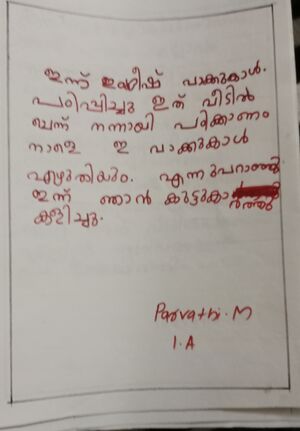 ഇന്ന് ഇംഗ്ലീഷ് വാക്കുകാൾ.
പഠിപ്പിച്ചു ഇത് വീടിൽ
ചന്ന് നന്നായി പഠിക്കാണം
നാളെ ഇ വാക്കുകാൾ
എഴുതിയും. എന്നുപറാഞ്ഞു
ഇന്ന് ഞാൻ കുട്ടുകാ
കളിച്ചു.
Parvathi.M
1.A